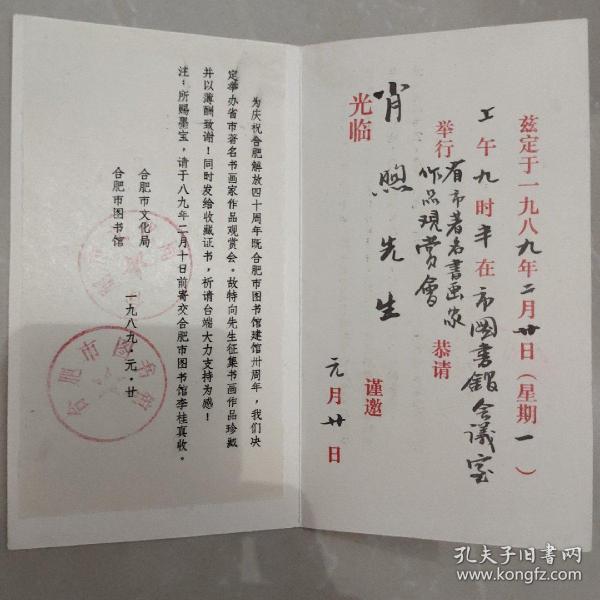 兹定于一九八九年二月廿日（星期一）
上午九时半在市图书馆会议室
举行省市著名书画家
作品观赏会 恭请
肖煦先生
光临
谨邀
元月廿日
为庆祝合肥解放四十周年既合肥市图书馆建馆卅周年，我们决
定举办省市著名书画家作品观赏会。故特向先生征集书画作品珍藏
并以薄酬致谢！同时发给收藏证书，祈请台端大力支持为感！
注：所赐墨宝，请于八九年二月十日前寄交合肥市图书馆李桂真收。
合肥市文化局
合肥市图书馆
一九八九·元·廿
合肥市图书馆
孔夫子旧书网
www.kongfz.com